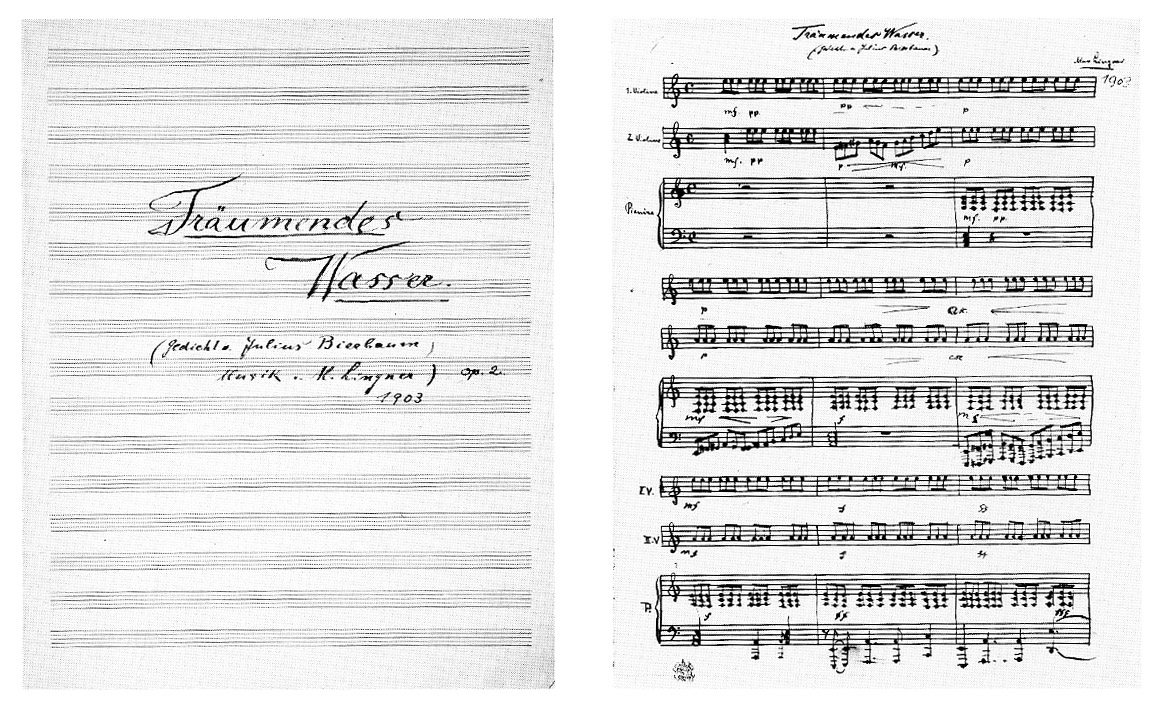 Träumendes
Wasser.
(Gedicht v. Julius Bierbaum,
Musik v. M. Lingner) op. 2.
1903
Träumendes Wasser.
(Gedicht v. Julius Bierbaum)
Max Lingner
1903
1. Violine
mf. pp. pp p
2. Violine
mf. pp p mf. p
Pianino
mf. pp.
p
p
mf f mf
I V.
mf f ff
II. V
mf f ff
P.
f ff fff